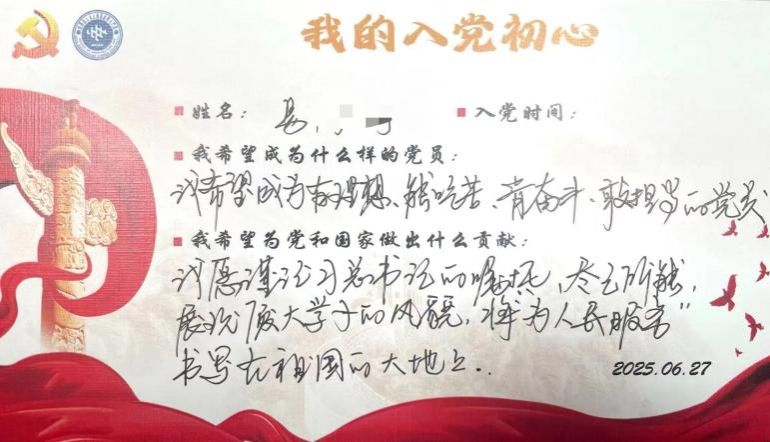 我的入党初心
姓名： 易
入党时间：
我希望成为什么样的党员：
我希望成为有理想、能吃苦、肯奋斗、敢担当的党员
我希望为党和国家做出什么贡献：
我愿谨记习总书记的嘱托，尽己所能，
展现厦大学子的风貌，将“为人民服务”
书写在祖国的大地上．.
2025.06.27